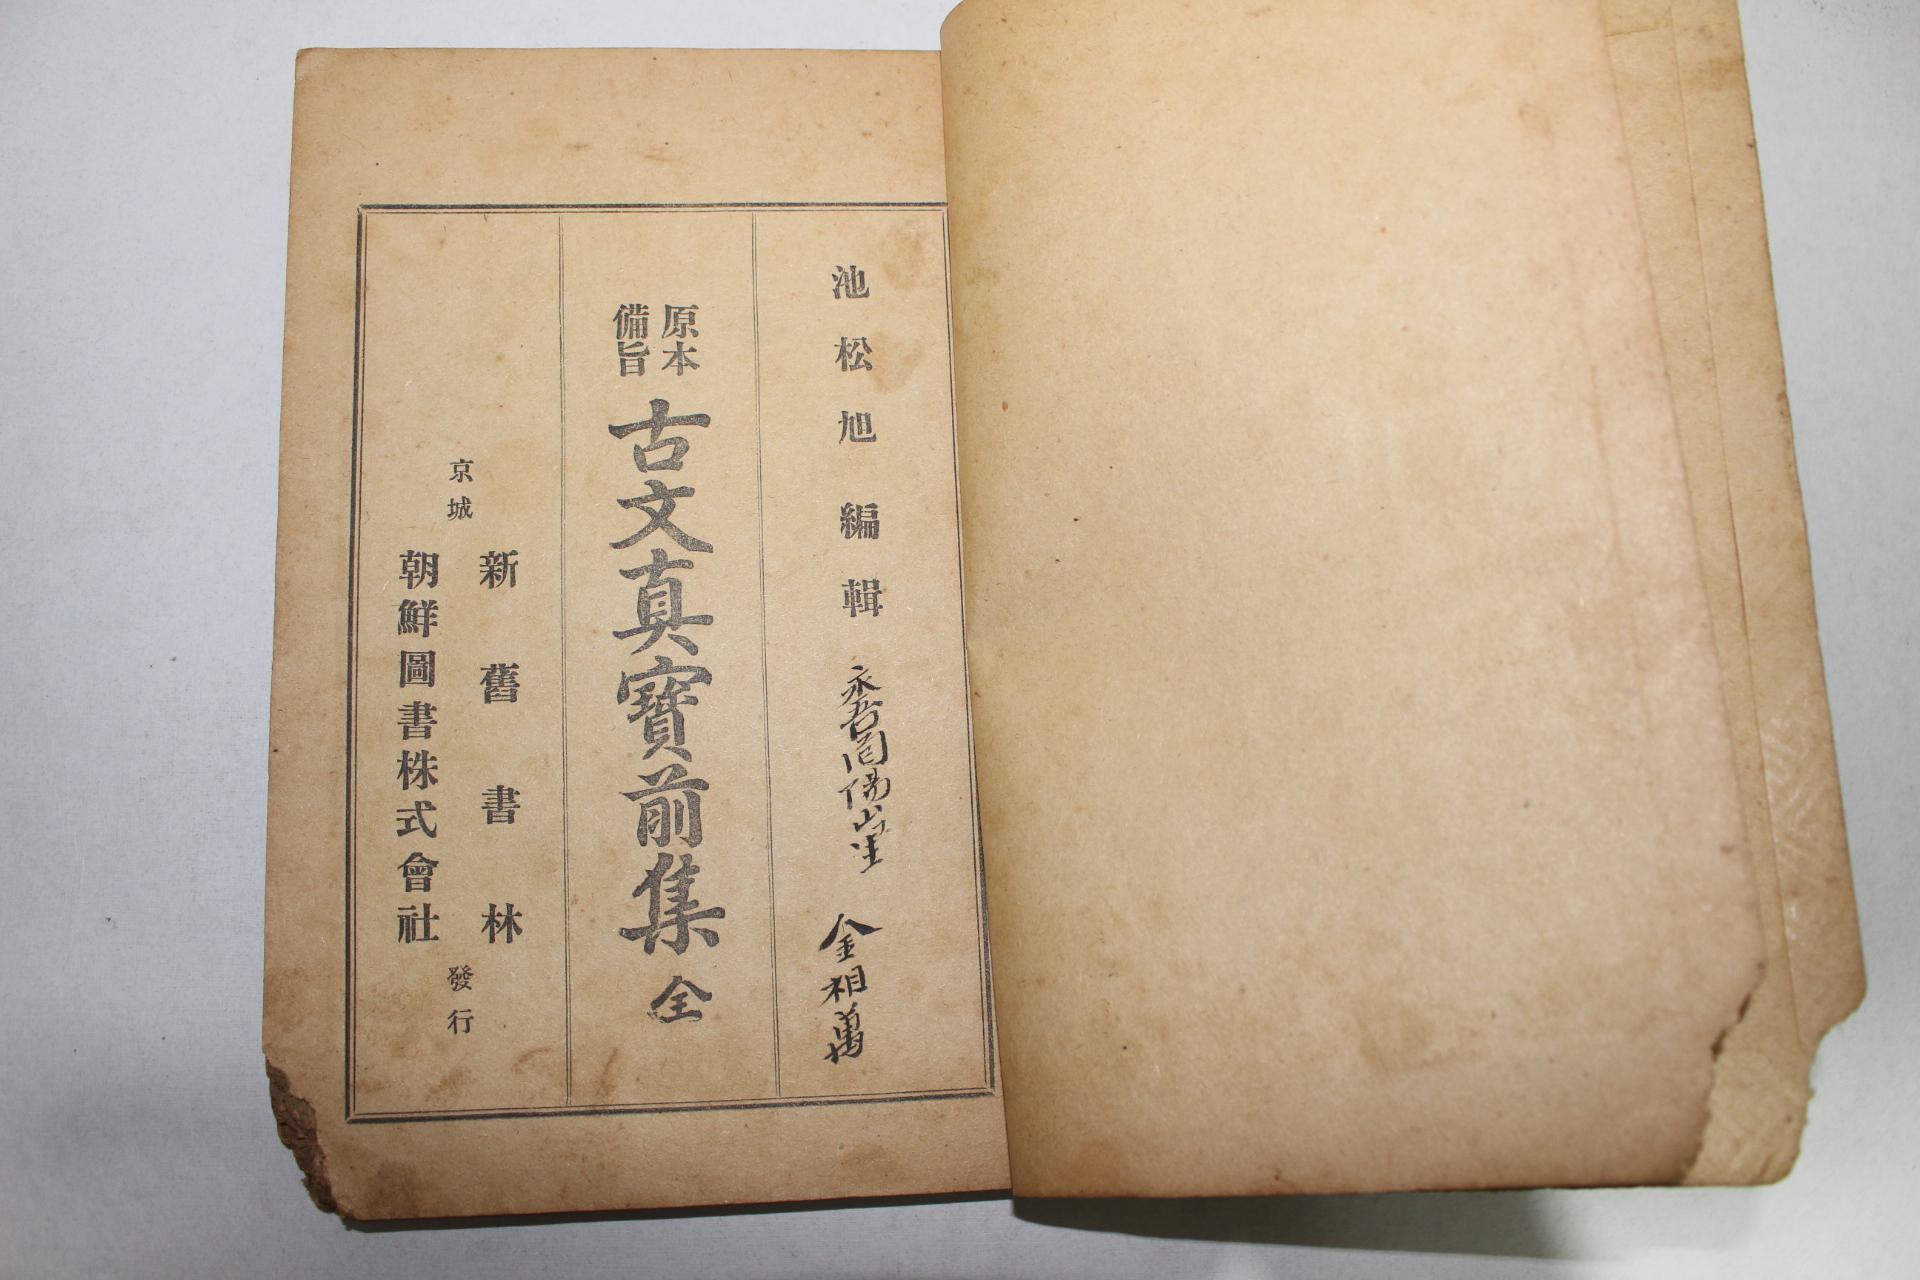 池松旭 編輯
金相萬
原本
備旨
古文真寶前集 全
京城
新舊書林
朝鮮圖書株式會社
發行